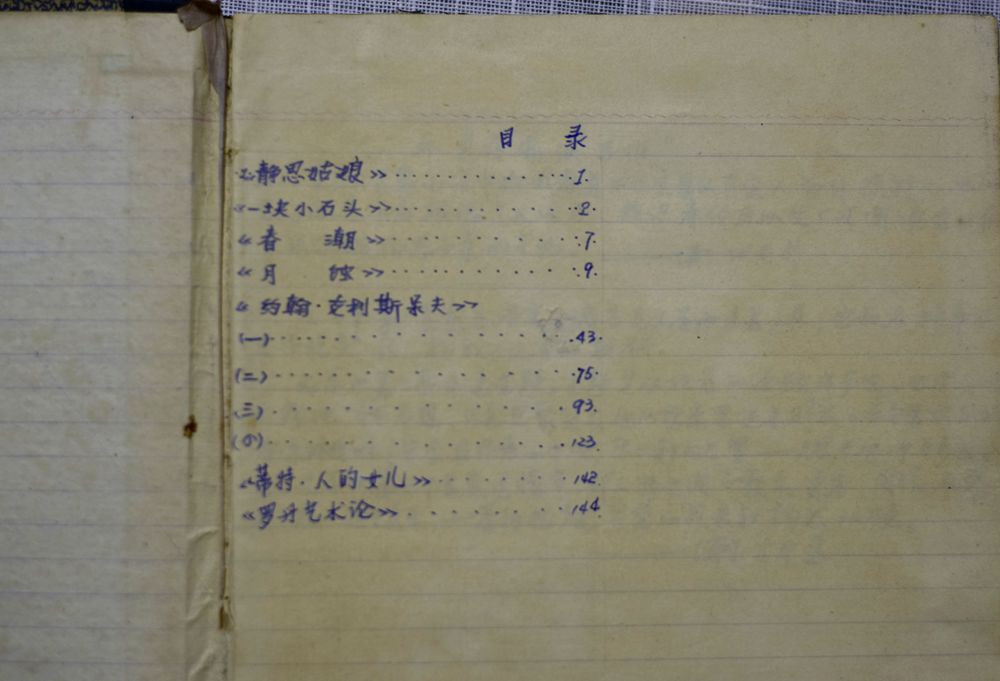 目 录
《静思姑娘》.............1.
《一块小石头》............2.
《春 潮》............7.
《月 蚀》............9.
《约翰·克利斯朵夫》
(一)................43.
(二)................75.
(三)................93.
(四)................123.
《蒂特·人的女儿》........142.
《罗丹艺术论》.........144.